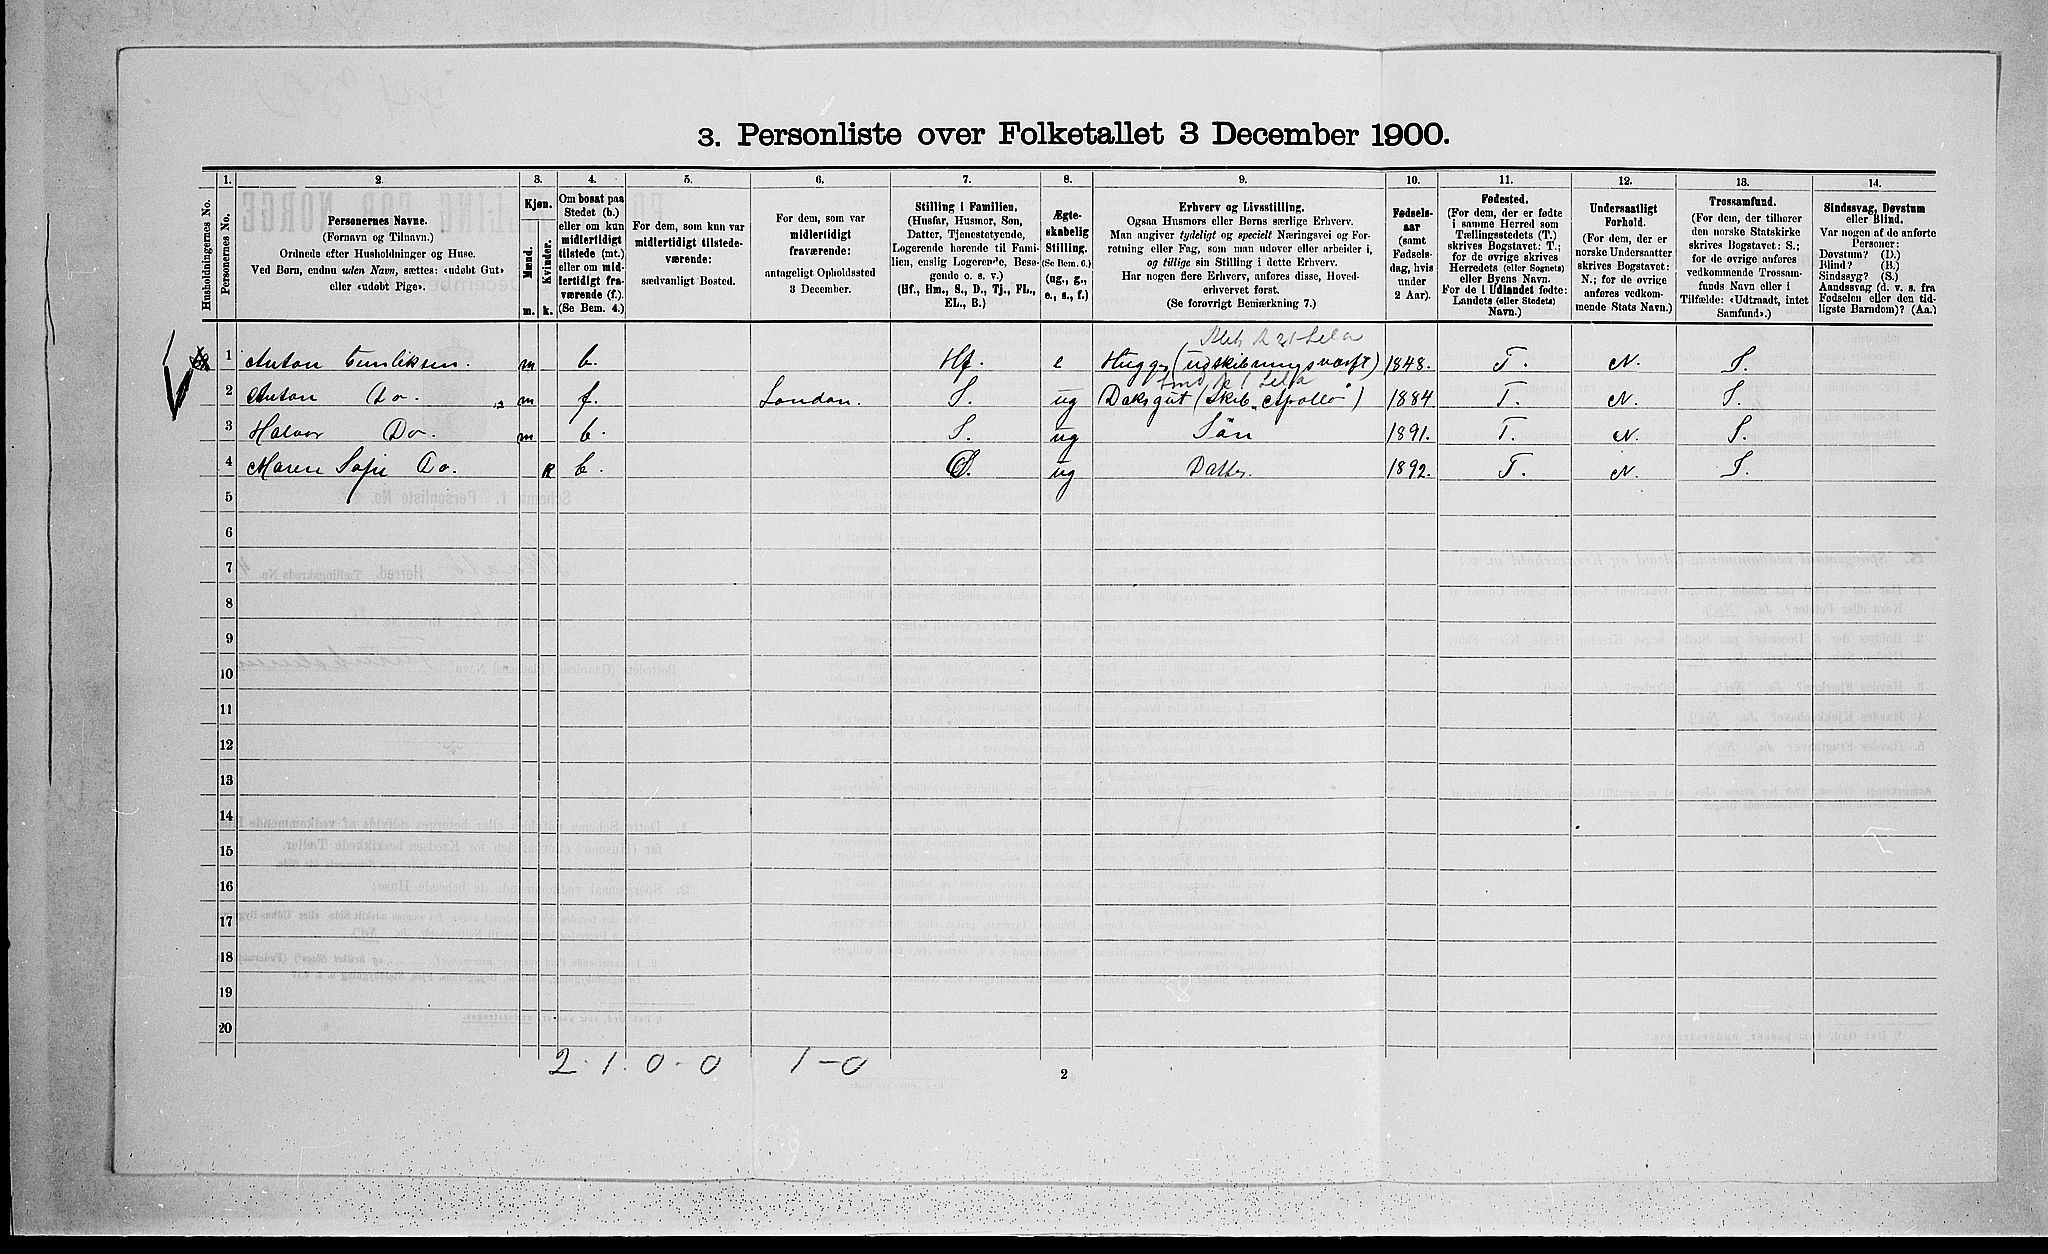 3. Personliste over Folketallet 3 December 1900.
Husholdningernes No.
1.
Personernes No.
2.
Personernes Navne.
(Fornavn og Tilnavn.)
Ordnede efter Husholdninger og Huse.
Ved Børn, endnu uden Navn, sættes: «udøbt Gut»
eller «udøbt Pige».
3.
Kjøn.
Mænd.
Kvinder.
m.
k.
4.
Om bosat paa
Stedet (b.)
eller om kun
midlertidigt
tilstede (mt.)
eller om mid-
lertidigt fra-
værende (f.)
(Se Bem. 4.)
5.
For dem, som kun var
midlertidigt tilstede-
værende:
sædvanligt Bosted.
6.
For dem, som var
midlertidigt
fraværende:
antageligt Opholdssted
3 December.
7.
Stilling i Familien.
(Husfar, Husmor, Søn,
Datter, Tjenestetyende,
Logerende hørende til Fami-
lien, enslig Logerende, Besø-
gende o. s. v.)
(Hf., Hm., S., D., Tj., FL.,
EL., B.)
8.
Ægte-
skabelig
Stilling.
(Se Bem. 6.)
(ug., g.,
e., s., f.)
9.
Erhverv og Livsstilling.
Ogsaa Husmors eller Børns særlige Erhverv.
Man angiver tydeligt og specielt Næringsvei og For-
retning eller Fag, som man udøver eller arbeider i,
og tillige sin Stilling i dette Erhverv.
Har nogen flere Erhverv, anføres disse, Hoved-
erhvervet først.
(Se forøvrigt Bemærkning 7.)
10.
Fødsels-
aar
(samt
Fødsels-
dag, hvis
under
2 Aar).
11.
Fødested.
(For dem, der er fødte
i samme Herred som
Tællingsstedets (T.)
skrives Bogstavet: T.;
for de øvrige skrives
Herredets (eller Sognets)
eller Byens Navn.
For de i Udlandet fødte:
Landets (eller Stedets)
Navn.)
12.
Undersaatligt
Forhold.
(For dem, der er
norske Undersaatter
skrives Bogstavet:
N.; for de øvrige
anføres vedkom-
mende Stats Navn.)
13.
Trossamfund.
(For dem, der tilhører
den norske Statskirke
skrives Bogstavet: S.;
for de øvrige anføres
vedkommende Trossam-
funds Navn eller i
Tilfælde: «Udtraadt, intet
Samfund».)
14.
Sindssvag, Døvstum
eller Blind.
Var nogen af de anførte
Personer:
Døvstum? (D.)
Blind? (B.)
Sindssyg? (S.)
Aandssvag (d. v. s. fra
Fødselen eller den tid-
ligste Barndom)? (Aa.)
1 Anton m b. Hf. e (udskibningsværft) 1848. T. N. S.
2 Anton Do. m f. London. S. ug Dæksgut (Skib "Apollo") 1884 T. N. S.
3 Halvor Do. m b. S. ug Sön 1891. T. N. S.
4 Maren Sofie Do. k b. D. ug Datter. 1892. T. N. S.
5
6
7
8
9
10
11
12
13
14
15
16
17
18
19
20
2 - 1 0 - 0 1 - 0
2